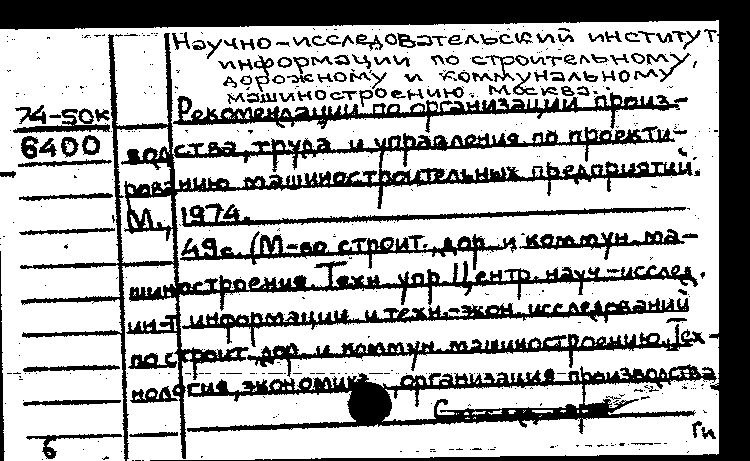 Научно-исследовательский институт
информации по строительному,
дорожному и коммунальному
машиностроению. Москва.
74-50к
Рекомендации по организации произ-
6400
водства, труда и управления по проекти-
рованию машиностроительных предприятий.
М., 1974.
49с. (М-во строит., дор. и коммун. ма-
шиностроения. Техн. упр. Центр. науч-исслед.
ин-т информации и техн.-экон. исследований
по строит., дор. и коммун. машиностроению. Тех-
нология, экономика, организация производства
Ги
6